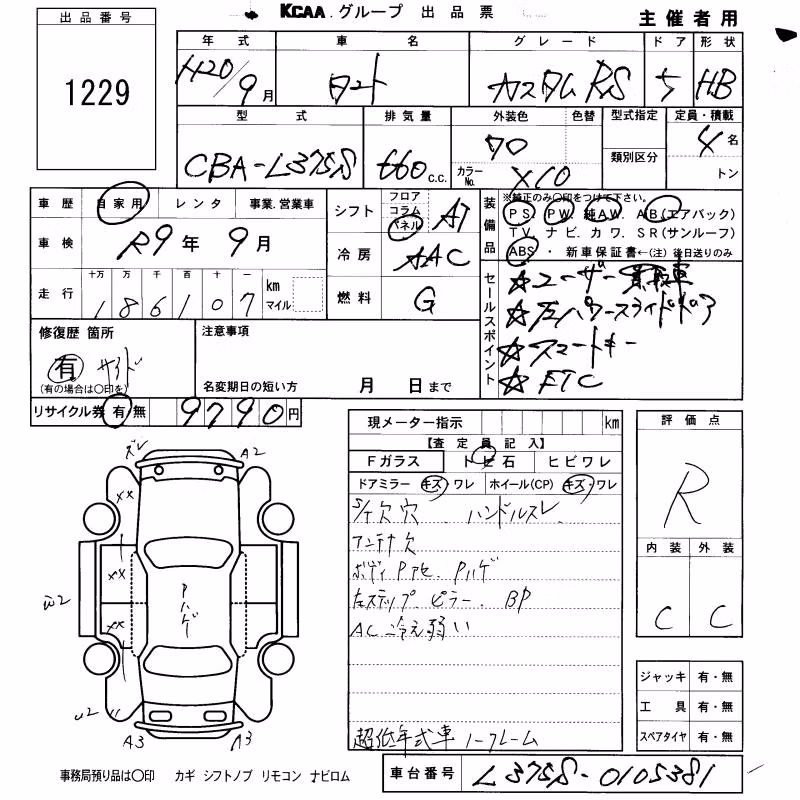 KCAA. グループ 出品票
主催者用
出品番号
1229
年式 車名 グレード ドア 形状
H20/9月 タント カスタム RS 5 HB
型式 排気量 外装色 色替 型式指定 定員・積載
CBA-L375S 660 c.c. 70 4名
カラーNo. X10 類別区分 トン
車歴 自家用 レンタ 事業.営業車
車検 R9年 9月
走行 十万 万 千 百 十 一
186107 km マイル
シフト フロア コラム パネル AT
冷房 AAC
燃料 G
装備品
※純正のみ〇印をつけて下さい。
PS PW 純AW. AB(エアバック)
TV. ナビ. カワ. SR(サンルーフ)
ABS ・ 新車保証書←(注) 後日送りのみ
セールスポイント
☆ユーザー買取車
☆左パワースライドドア
☆スマートキー
☆ETC
修復歴 箇所
有 サイド
(有の場合は〇印を)
注意事項
名変期日の短い方 月 日まで
リサイクル券 有 無 9790円
現メーター指示 km
【査定員記入】
Fガラス トビ石 ヒビワレ
ドアミラー キズ・ワレ ホイール(CP) キズ・ワレ
S/T欠穴 ハンドルスレ
アンテナ欠
ボディPアセ. Pハゲ
左ステップ ピラー. BP
AC 冷え弱い
超低年式車 ノークレーム
評価点
R
内装 外装
C C
ジャッキ 有・無
工具 有・無
スペアタイヤ 有・無
ズレ A2
xx
xx
Pハゲ
xx
A3 A3
事務局預り品は〇印 カギ シフトノブ リモコン ナビロム
車台番号 L375S-0105381